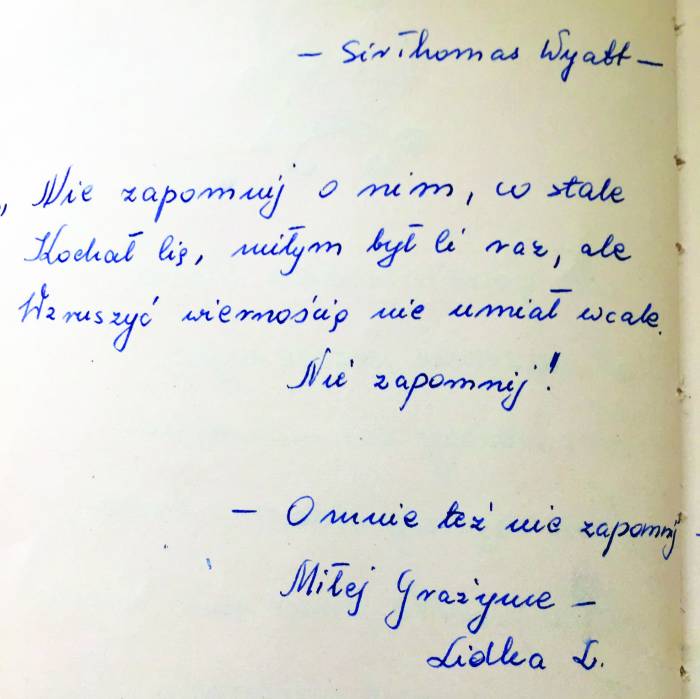 – Sir Thomas Wyatt –
„Nie zapomnij o nim, co stale
Kochał Cię, miłym był Ci raz, ale
Wzruszyć wiernością nie umiał wcale.
Nie zapomnij!
– O mnie też nie zapomnij –
Miłej Grażynie –
Lidka L.